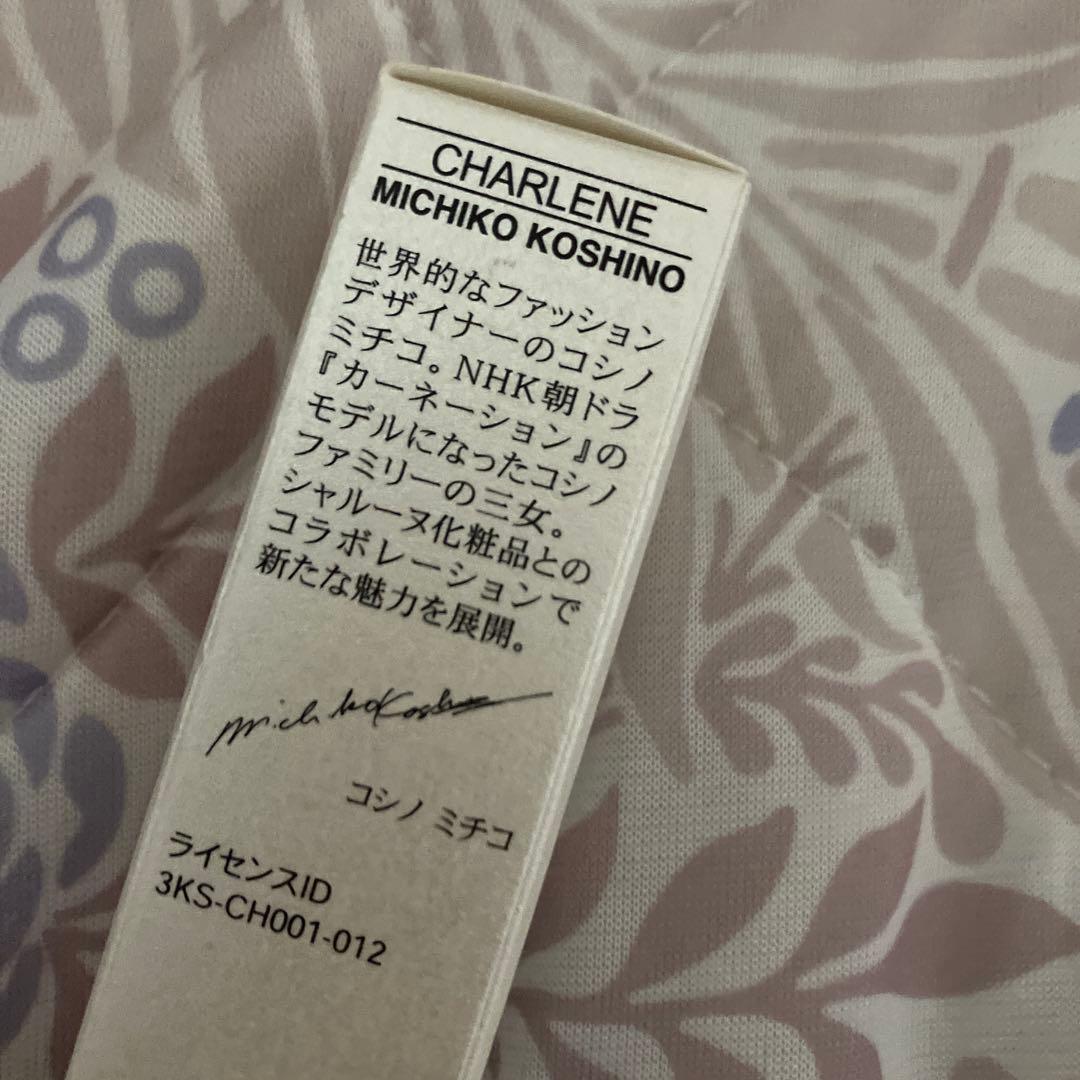 CHARLENE
MICHIKO KOSHINO
世界的なファッション
デザイナーのコシノ
ミチコ。NHK朝ドラ
『カーネーション』の
モデルになったコシノ
ファミリーの三女。
シャルーヌ化粧品との
コラボレーションで
新たな魅力を展開。
Michiko Koshino
コシノ ミチコ
ライセンスID
3KS-CH001-012